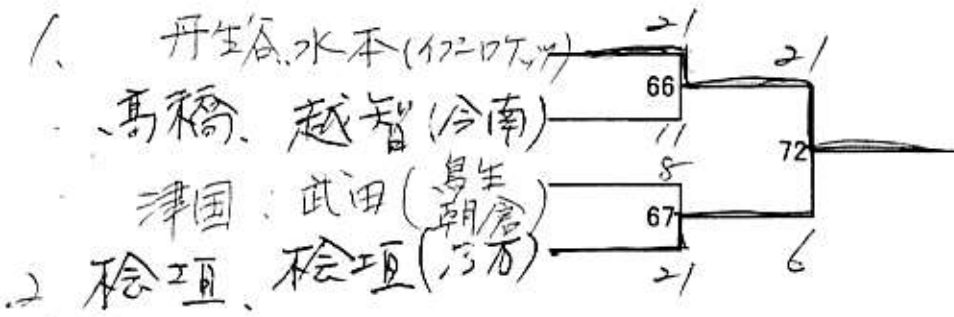 1、 丹生谷、水本(イフニロケッツ) 21
66 21
高橋、越智(今南) 11
72
津国:武田(鳥生 朝倉) 8
67 6
2 桧垣、桧垣() 21